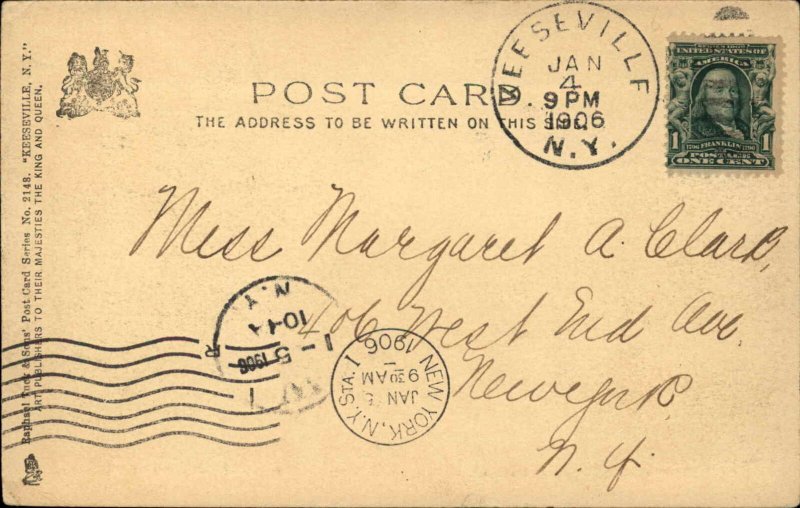 Raphael Tuck & Sons' Post Card Series No. 2148. "KEESEVILLE, N. Y."
ART PUBLISHERS TO THEIR MAJESTIES THE KING AND QUEEN.
POST CARD
THE ADDRESS TO BE WRITTEN ON THIS SIDE.
KEESEVILLE
JAN
4
9 PM
1906
N.Y.
UNITED STATES OF
AMERICA
1
1706 FRANKLIN 1790
POSTAGE
ONE CENT
Miss Margaret A. Clark,
406 West End Ave.
New York
N. Y.
N.Y.
10-1A
1-5
1906
R
NEW YORK, N.Y. STA. I
JAN 5
9 30 AM
1906